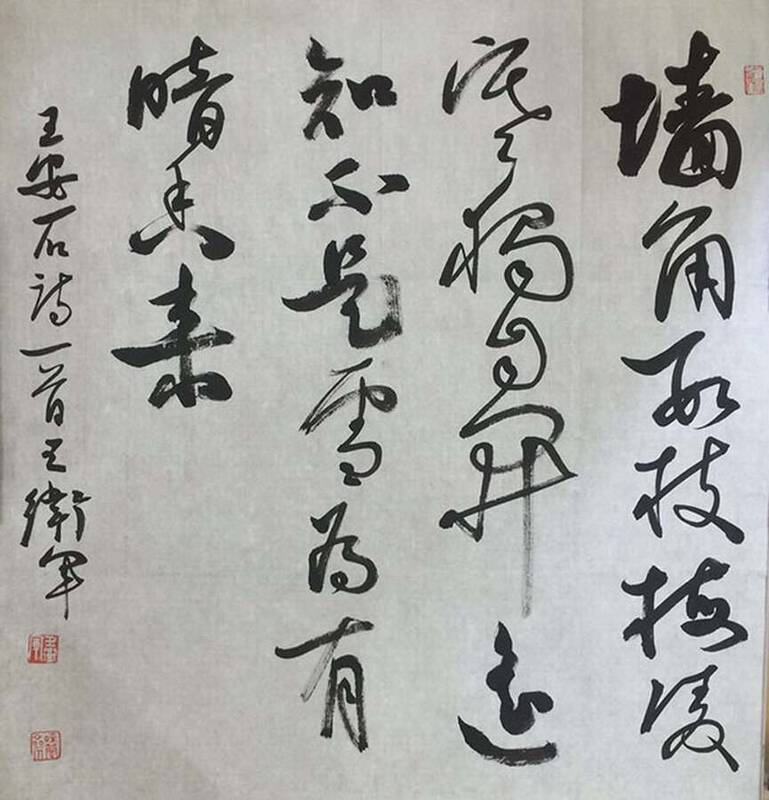 墙角数枝梅凌
寒独自開遥
知不是雪為有
暗香来
王安石诗一首王衛军